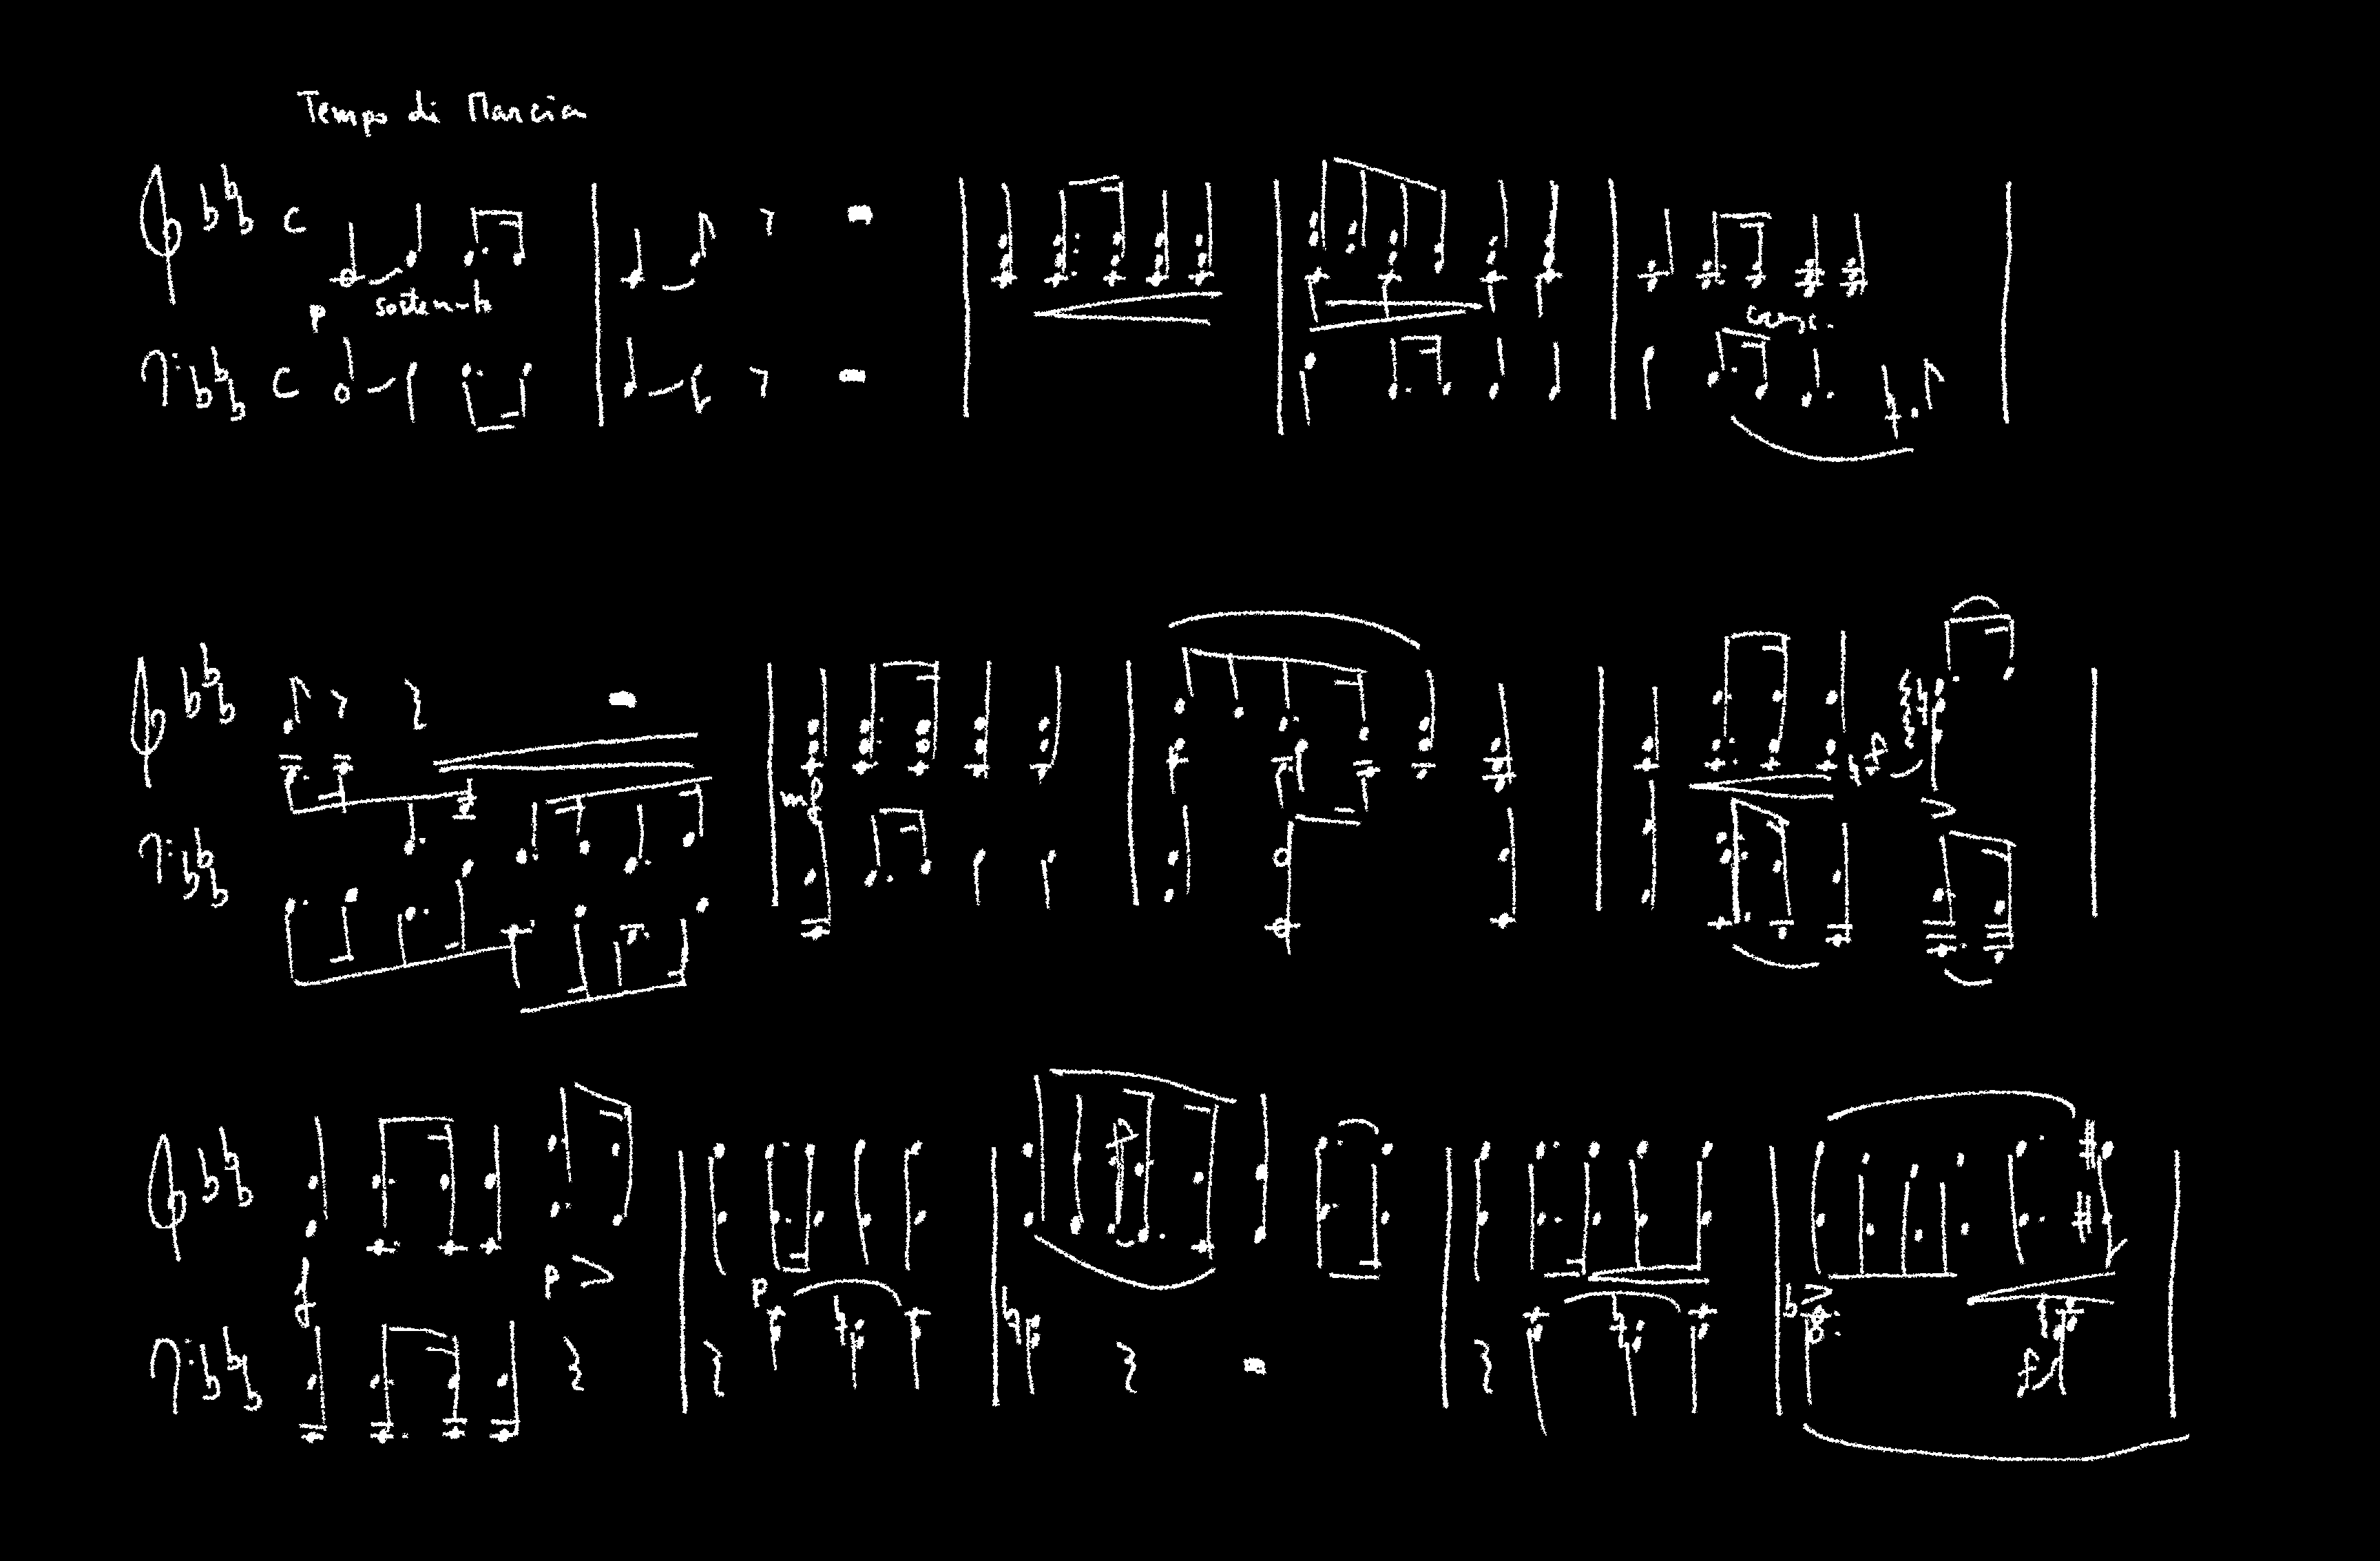 Tempo di Marcia
C
p sostenuto
C
cresc.
mf
f
f
p
p
f
f